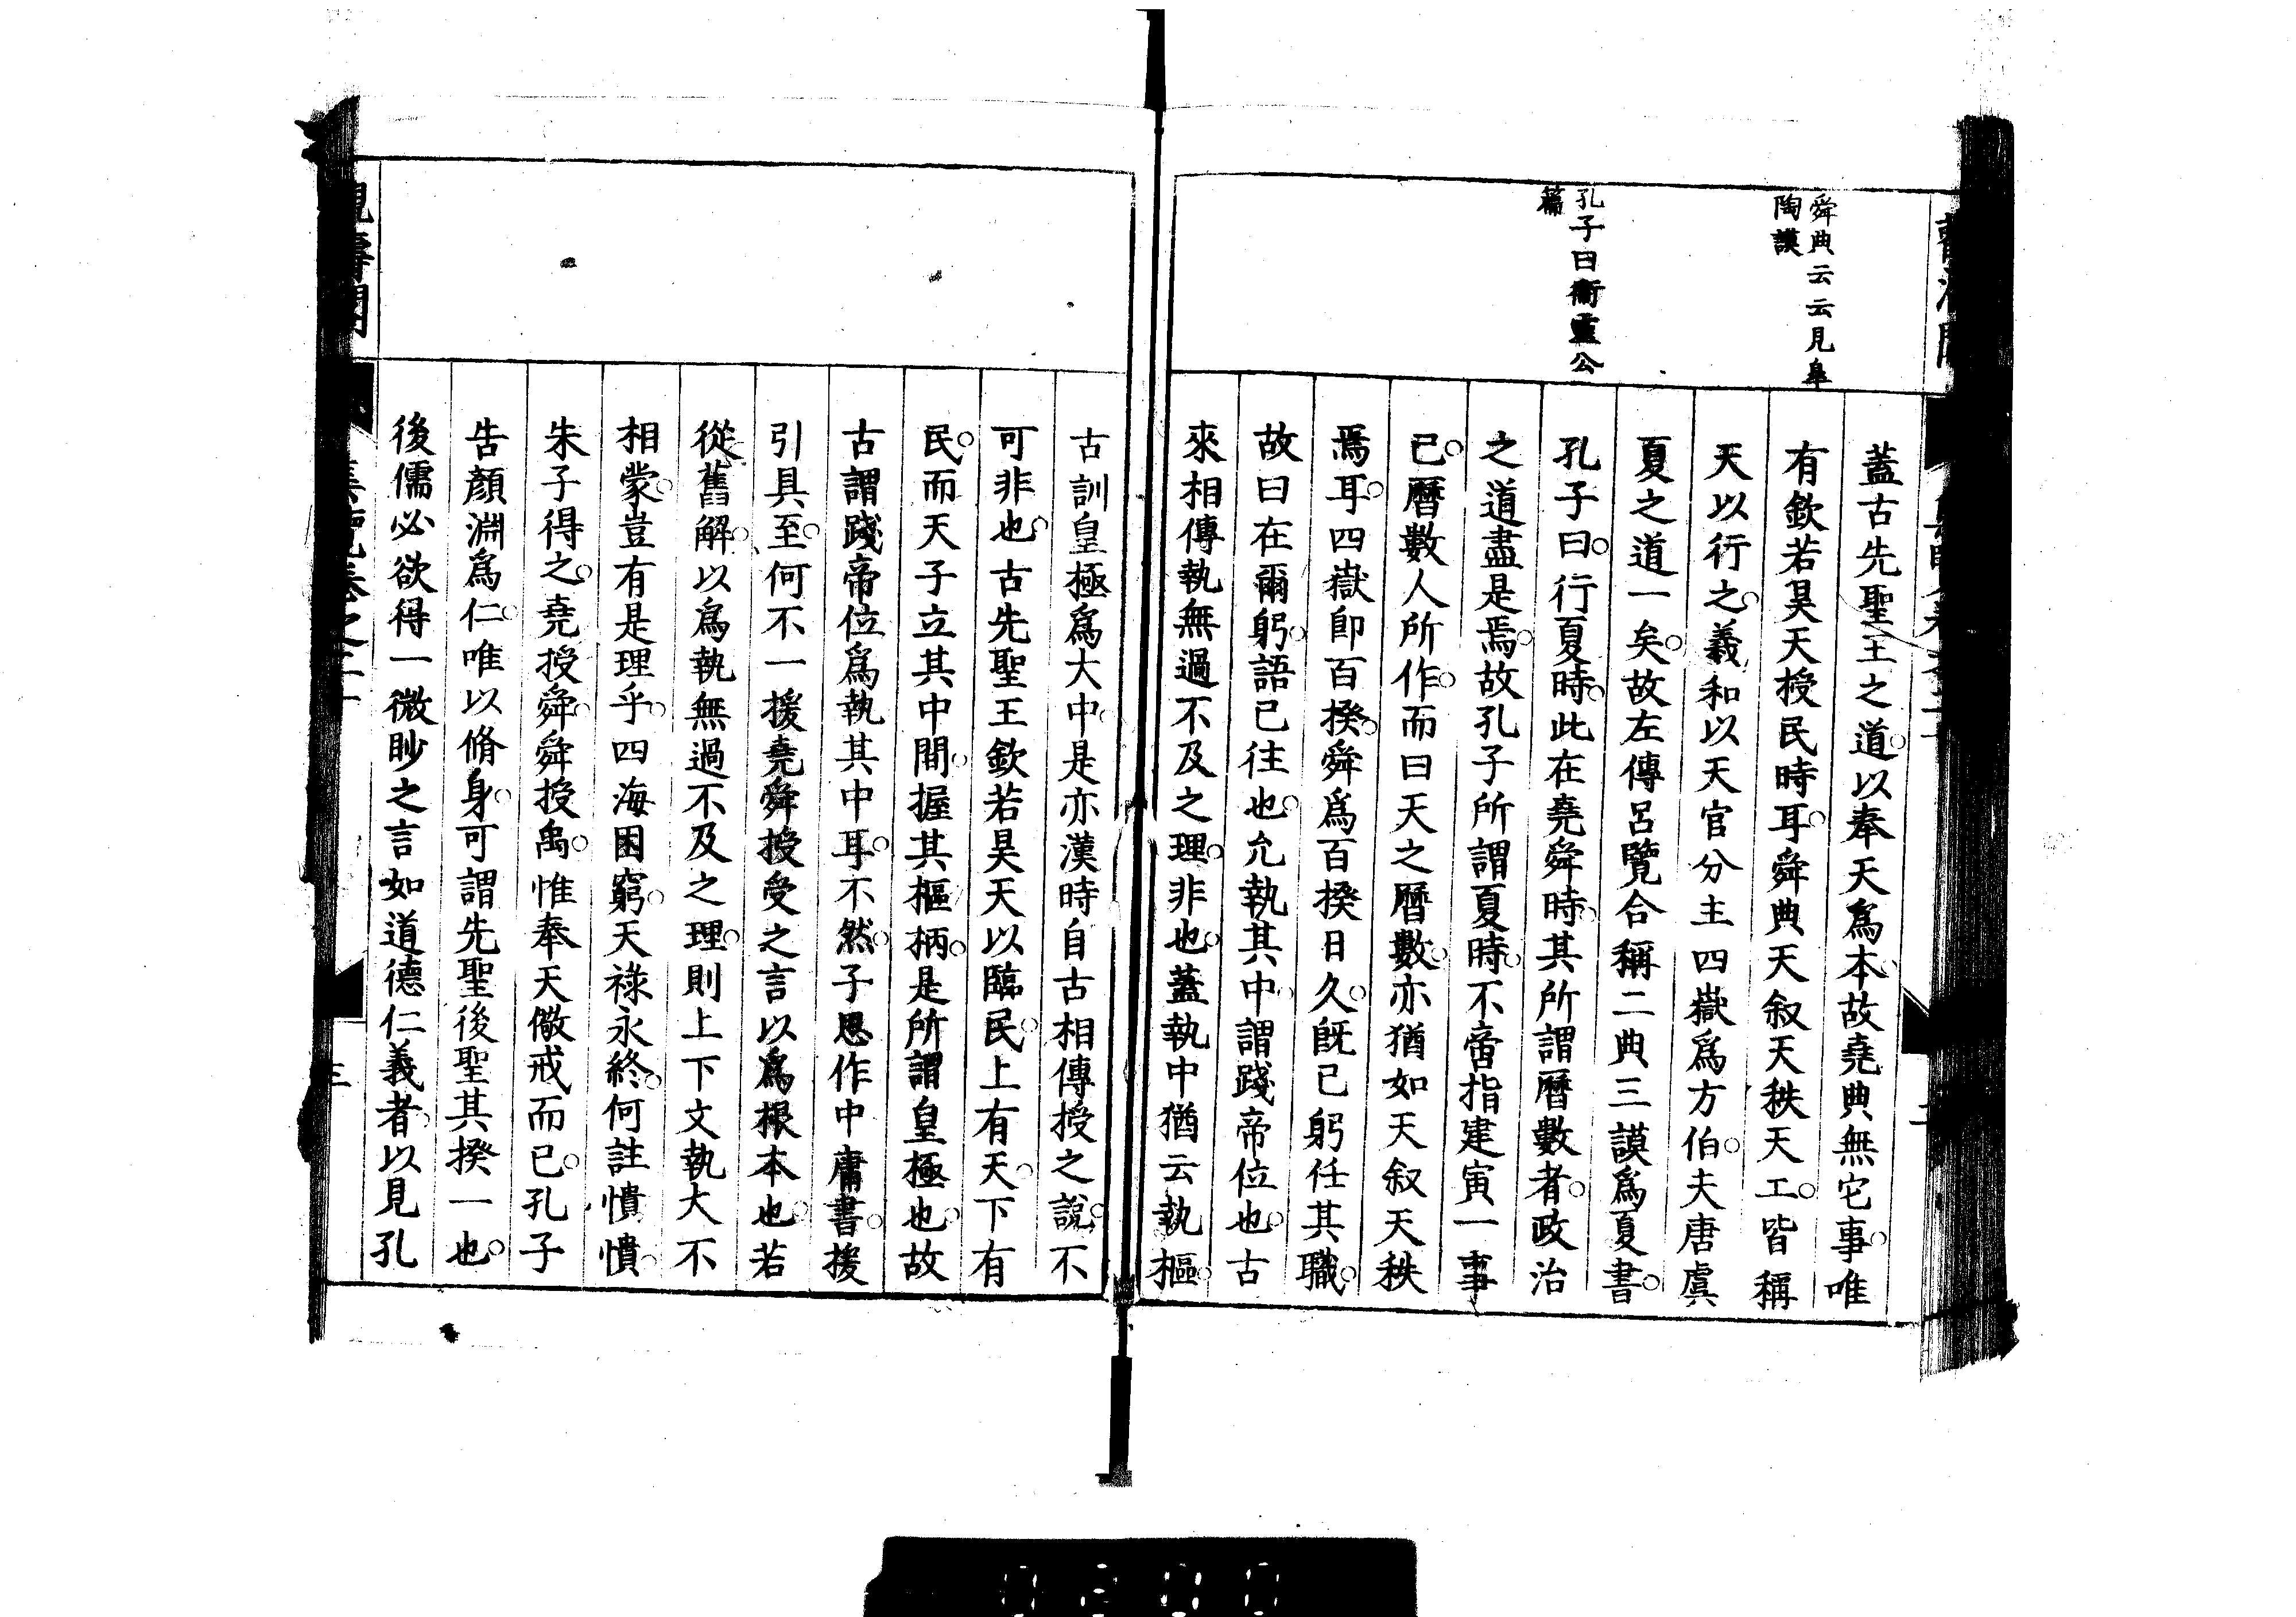 舜典云云見皐
陶謨
孔子曰衞靈公
篇
蓋古先聖王之道。以奉天爲本。故堯典無它事。唯
有欽若昊天授民時耳。舜典天叙天秩天工。皆稱
天以行之。義和以天官分主四嶽爲方伯。夫唐虞
夏之道一矣。故左傳呂覽合稱二典三謨爲夏書。
孔子曰。行夏時。此在堯舜時。其所謂曆數者。政治
之道盡是焉。故孔子所謂夏時。不啻指建寅一事
已。曆數人所作。而曰天之曆數。亦猶如天叙天秩
焉耳。四嶽卽百揆。舜爲百揆日久。旣已躬任其職。
故曰在爾躬。語已往也。允執其中。謂踐帝位也。古
來相傳執無過不及之理。非也。蓋執中猶云執樞。
古訓皇極爲大中。是亦漢時自古相傳授之說。不
可非也。古先聖王欽若昊天以臨民。上有天。下有
民。而天子立其中間。握其樞柄。是所謂皇極也。故
古謂踐帝位爲執其中耳。不然。子思作中庸書。援
引具至。何不一援堯舜授受之言以爲根本也。若
從舊解。以爲執無過不及之理。則上下文執大不
相蒙。豈有是理乎。四海困窮。天祿永終。何註憒憒。
朱子得之。堯授舜。舜授禹。惟奉天儆戒而已。孔子
告顏淵爲仁。唯以脩身。可謂先聖後聖其揆一也。
後儒必欲得一微眇之言如道德仁義者。以見孔